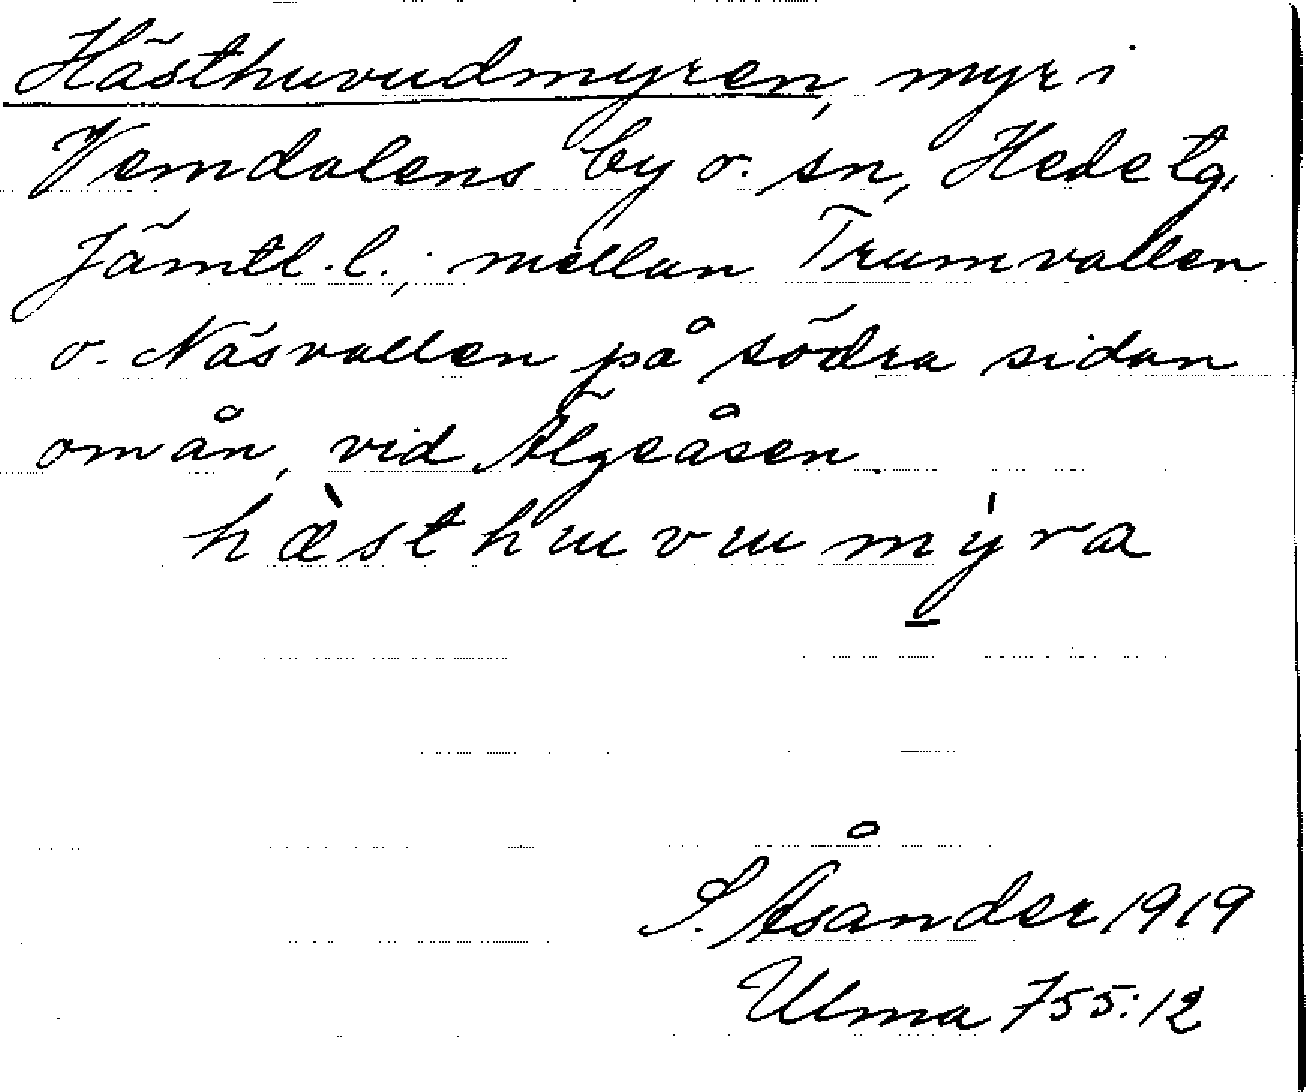 Hästhuvudmyren, myr i
Vemdalens by o. sn, Hede tg,
Jämtl. l.; mellan Trumvallen
o. Näsvallen på södra sidan
om ån, vid Älgeåsen.
hæ̀sthuvumy̍ra
S. Åsander 1919
Ulma 755:12